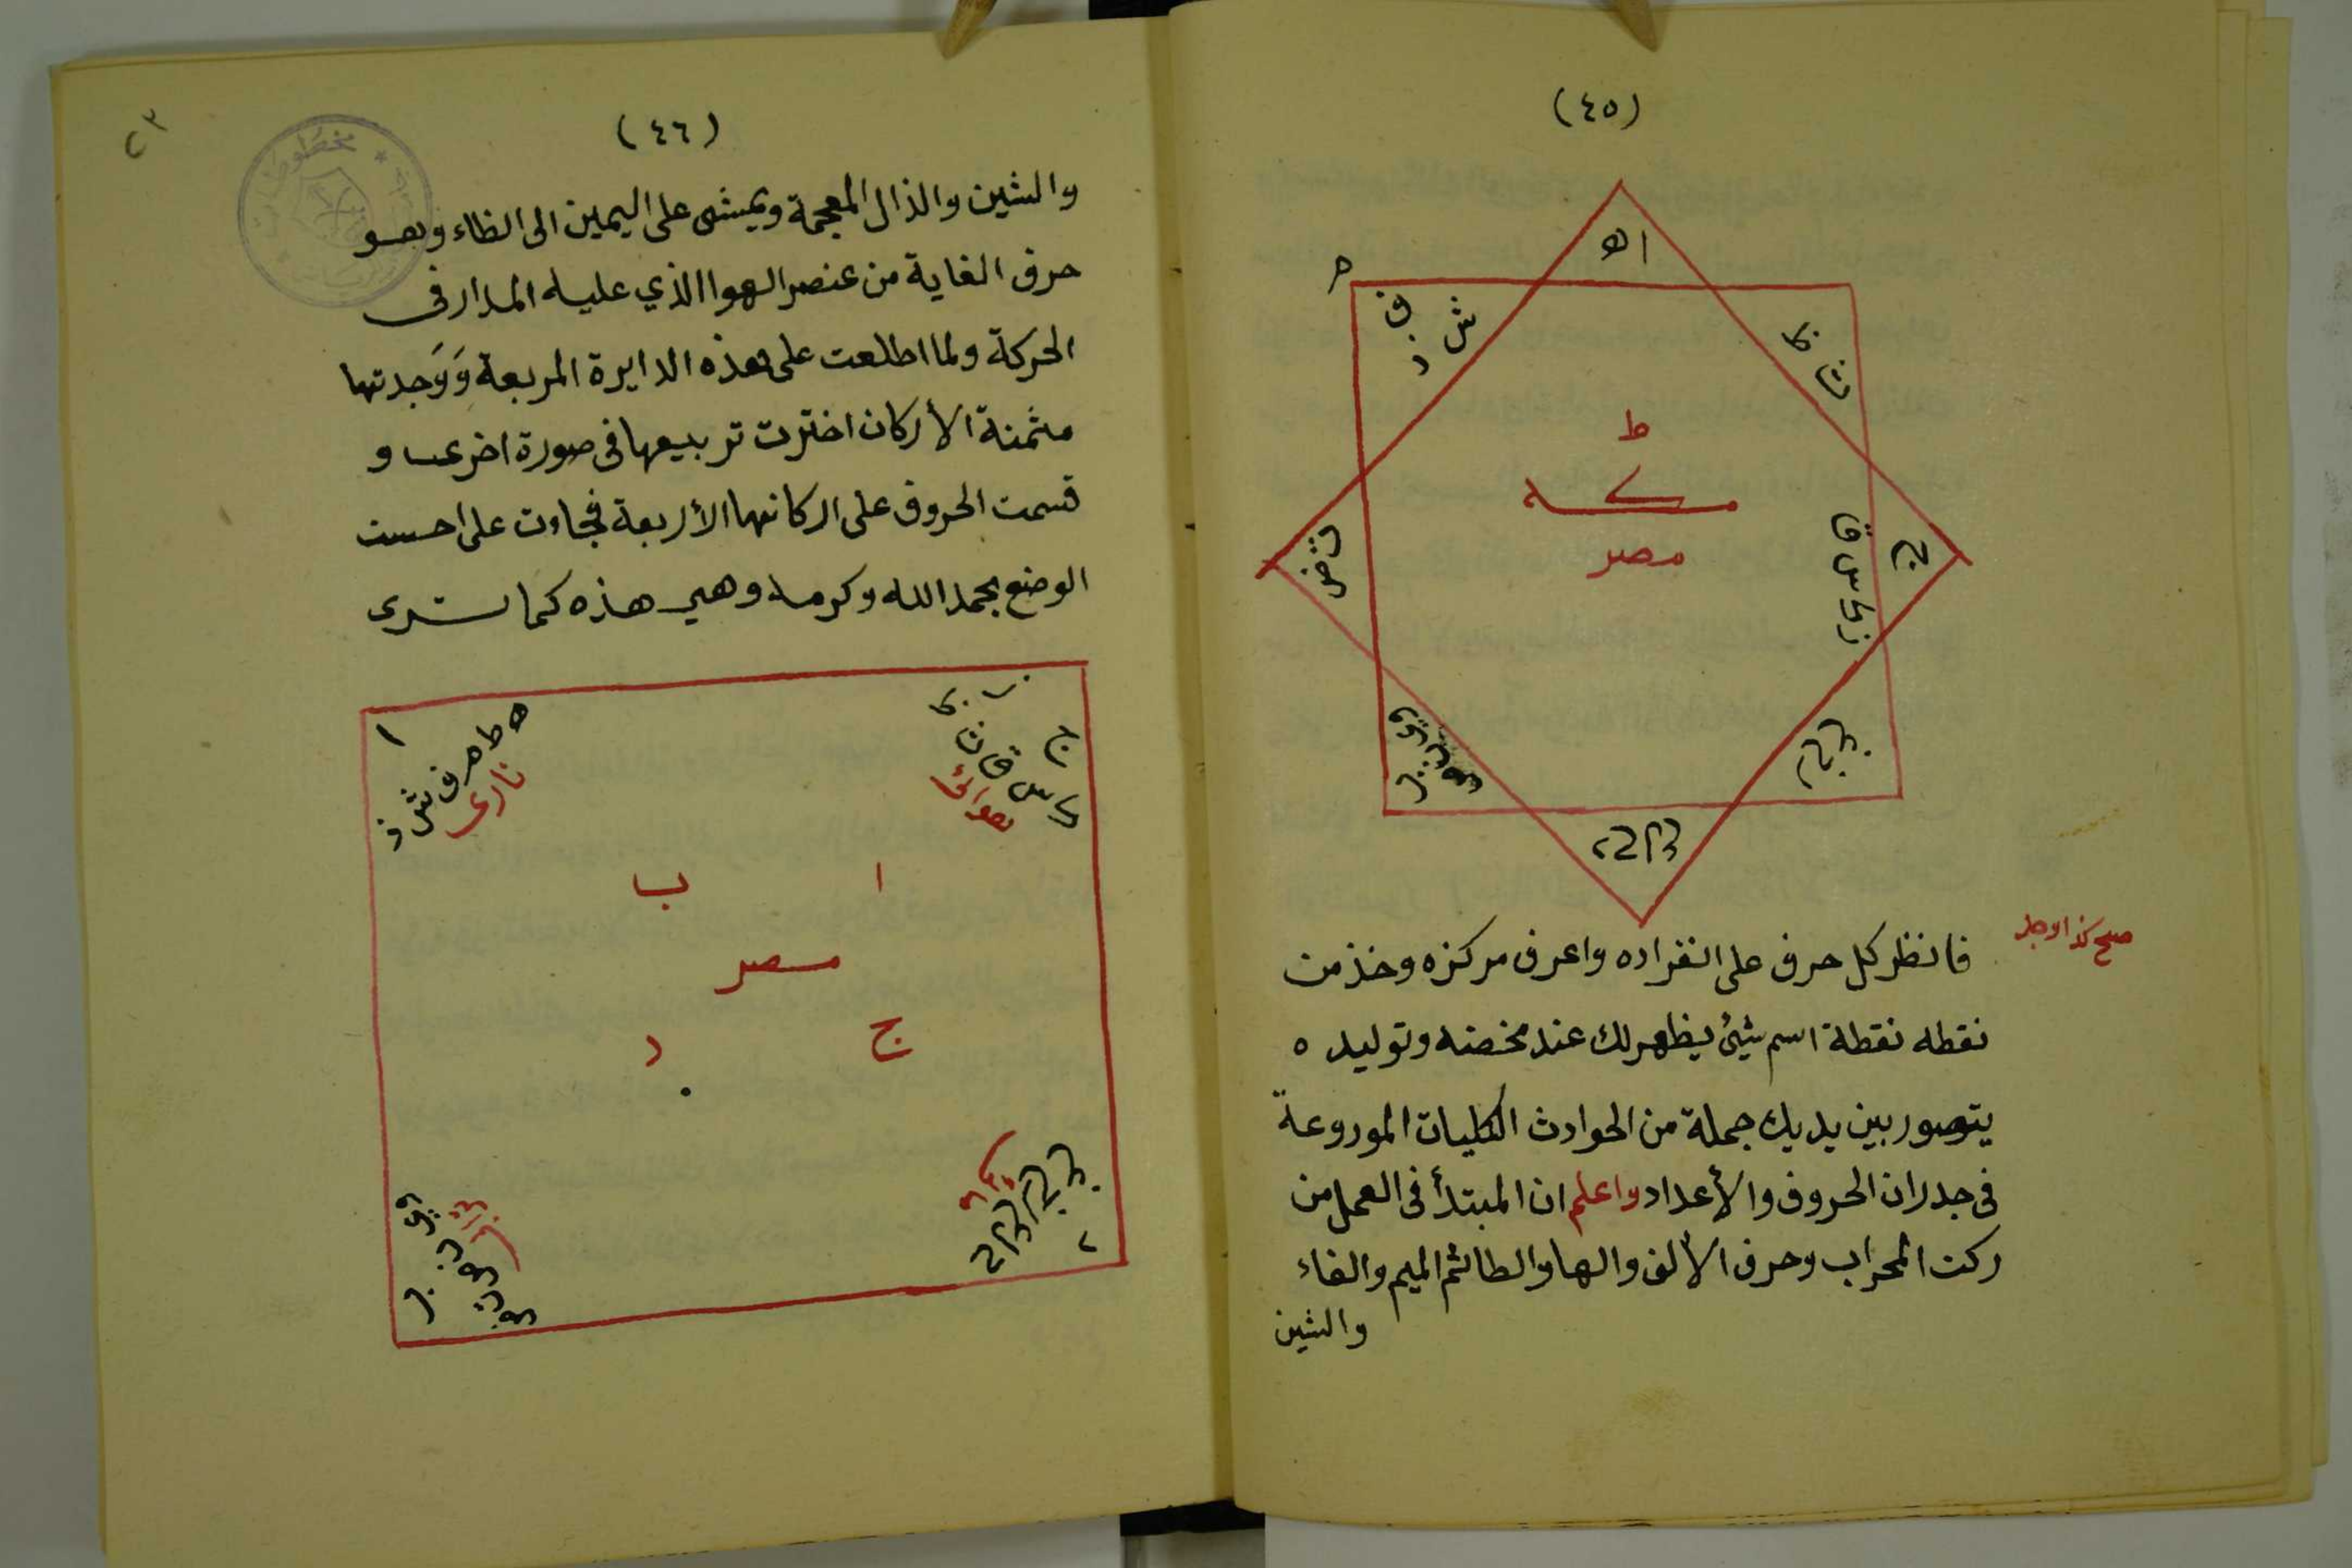 (٤٥)
ا ه
م
ف
ش
د
ظ
ث
ط
مكه
مصر
ج
د ح ل
فانظر كل حرف على انفراده واعرف مركزه وخذ من
صح كذا وجد
نقطه نقطة اسم شيئ يظهر لك عند مخضه وتوليده
يتصور بين يديك جملة من الحوادث الكليات الموروعة
فى جدران الحروف والأعداد واعلم ان المبتدأ فى العمل من
ركن المحراب وحرف الألف والها والطا ثم الميم والفاء
والشين
(٤٦)
٢٣
مخطوطات
والشين والذال المعجمة ويمشى على اليمين الى الظاء وهو
حرف الغاية من عنصر الهوا الذي عليه المدار فى
الحركة ولما اطلعت على هذه الدايرة المربعة وَوَجدتها
مثمنة الأركان اخترت تربيعها فى صورة اخرى و
قسمت الحروف على اركانها الأربعة فجاءت على احسن
الوضع بحمد الله وكرمه وهي هذه كما ترى
ا
ه ط م ف ش ذ
نارى
ج
ك س ق ث ظ
هوائى
ا ب
مصر
ج د